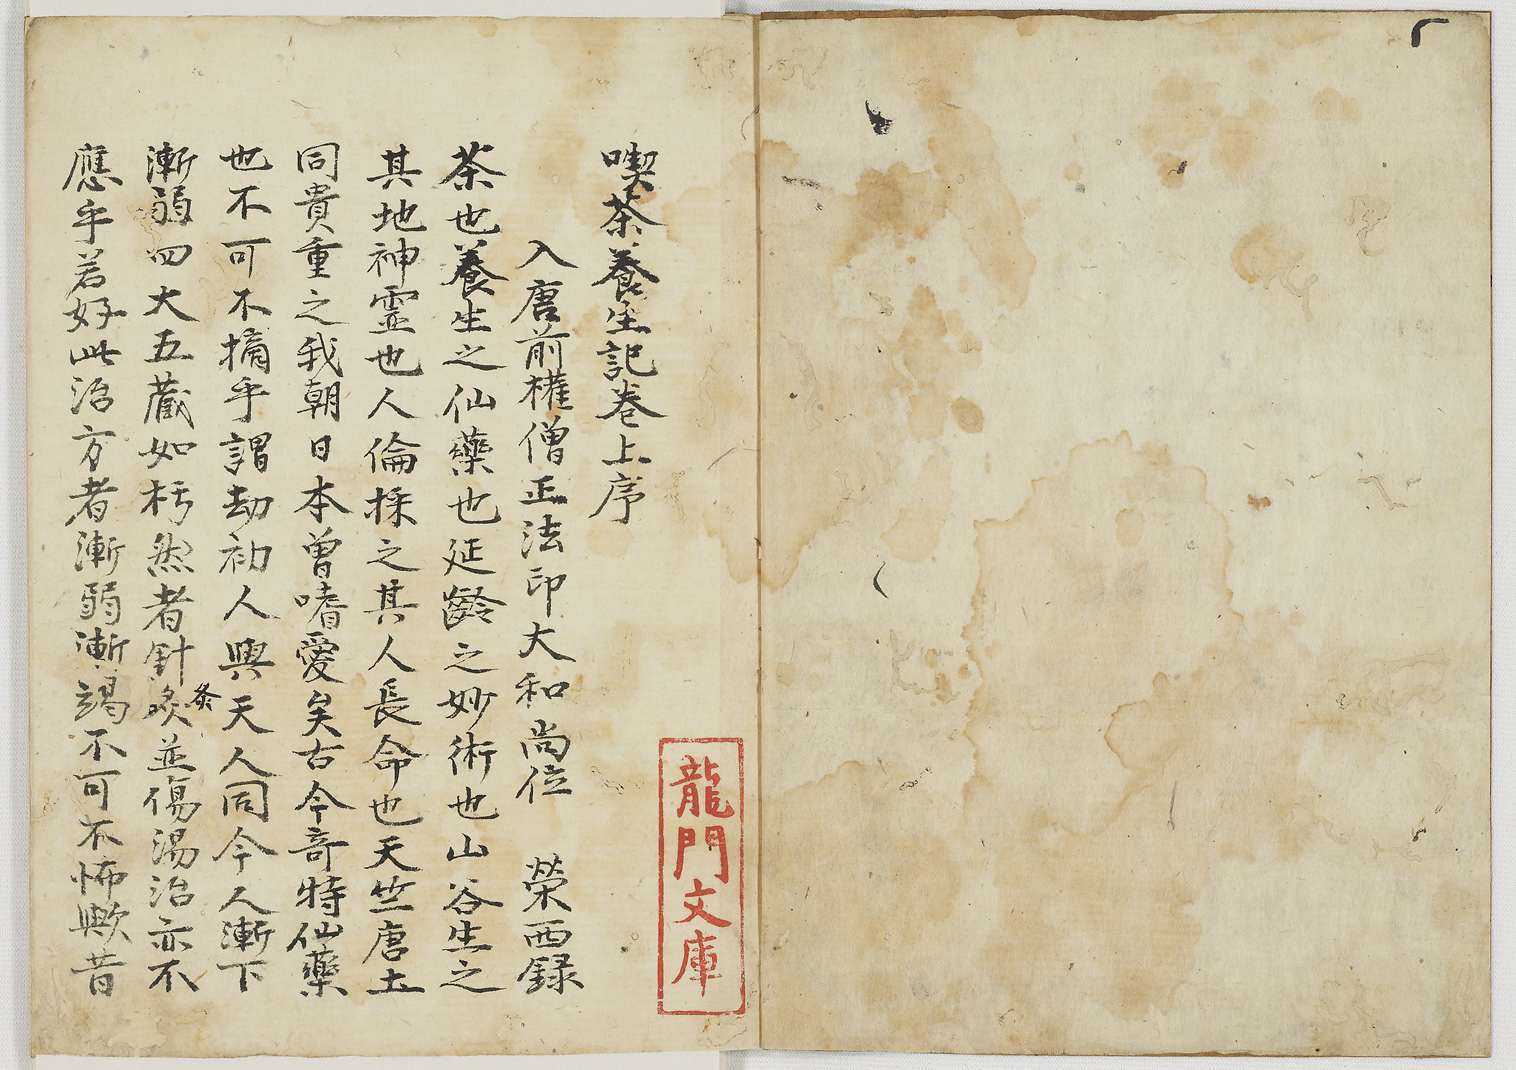 喫茶養生記巻上序
入唐前權僧正法印大和尚位 榮西録
茶也養生之仙藥也延齡之妙術也山谷生之
其地神霊也人倫採之其人長命也天竺唐土
同貴重之我朝日本曽嗜愛矣古今奇特仙藥
也不可不摘乎謂劫初人與天人同今人漸下
漸弱四大五蔵如朽然者針灸並傷湯治亦不
灸
應乎若好此治方者漸弱漸竭不可不怖歟昔
龍門文庫